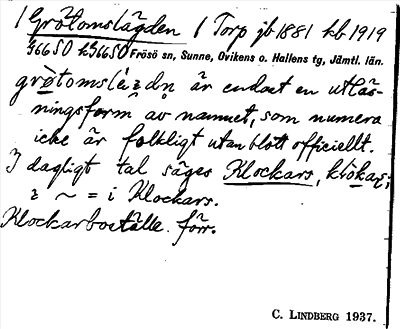 1 Grötomslägden / Torp jb 1881 kb 1919
G66SO kG66SO Frösö sn, Sunne, Ovikens o. Hallens tg, Jämtl. län.
är endast en utläs-
ningsform av namnet, som numera
icke är folkligt utan blott officiellt.
I dagligt tal säges Klockars,
~ = i Klockars.
Klockarboställe förr.
C. LINDBERG 1937.